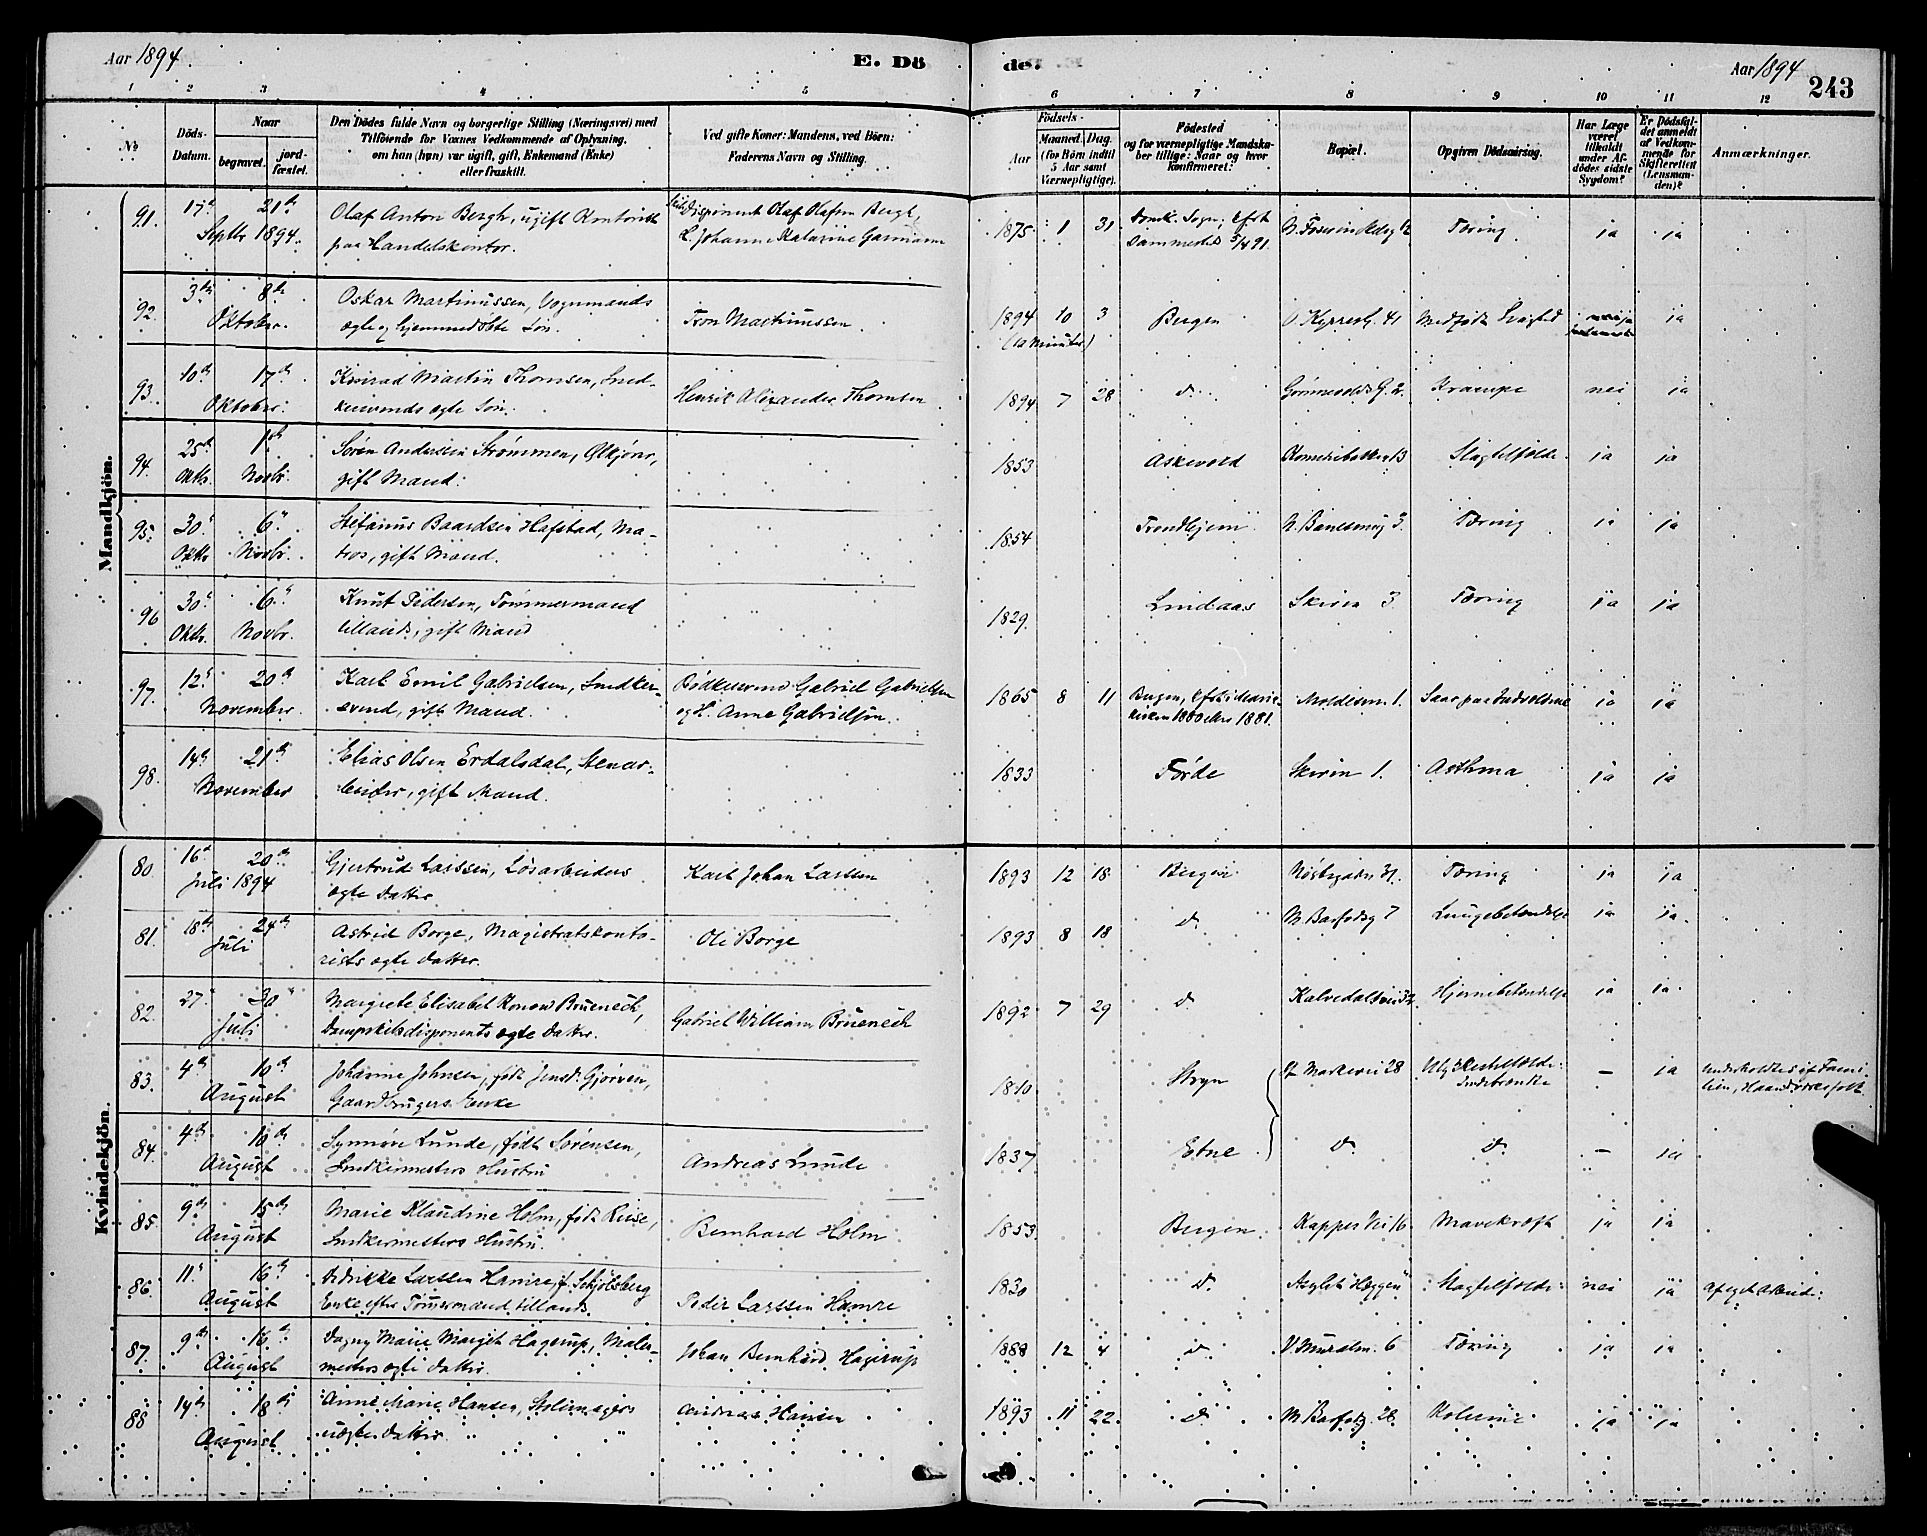 Aar 1894.
E. Dö
de.
Aar 1894
243
1 2 3 4 5 6 7 8 9 10 11 12
No
Döds-
Datum.
Naar
begravet.
jord-
fæstet.
Den Dödes fulde Navn og borgerlige Stilling (Næringsvei) med
Tilföiende for Voxnes Vedkommende af Oplysning,
om han (hun) var ugift, gift, Enkemand (Enke)
eller fraskilt.
Ved gifte Koner: Mandens, ved Börn:
Faderens Navn og Stilling.
Födsels-
Aar
Maaned.
Dag.
(for Börn indtil
5 Aar samt
Værnepligtige).
Födested
og for værnepligtige Mandska-
ber tillige: Naar og hvor
konfirmeret?
Bopæl.
Opgiven Dödsaarsag.
Har Læge
været
tilkaldt
under Af-
dödes sidste
Sygdom?
Er Dödsfal-
det anmeldt
af Vedkom-
mende for
Skifteretten
(Lensman-
den)?
Anmærkninger.
Mandkjön.
91. 17de 21de
Septbr 1894.
Olaf Anton Bergh, ugift Kontorist
paa Handelskontor.
Disponent Olaf Olsen Bergh,
H. Johanne Katarine Garmann
1875 1 31
Domk. Sogn; Kfst
sammesteds 5/4 91.
Tæring ja ja
92. 3die 8de
Oktober.
Oskar Martinussen, Vognmands
ægte hjemmedøbte Søn.
Tron Martinussen.
1894 10 3
(10 Minuter)
Bergen
Ø Kyrresg. 41
Medfødt Svaghed
ja
93. 10de 17de
Oktober.
Konrad Martin Thomsen, Sned-
kersvends ægte Søn.
Henrik Alexander Thomsen
1894 7 28
do
Krampe nei ja
94. 25de 1ste
Oktbr. Novbr.
Søren Andersen Strømmen,
gift Mand.
1853
Askevold
Slagtilfælde. ja ja
95. 30. 6.
Oktbr Novbr.
Stefanus Baardsen Hafstad, Ma-
tros, gift Mand.
1854
Trondhjem
3.
Tæring ja ja
96 30. 6.
Oktbr. Novbr.
Knut Pedersen, Tømmermand
tillands, gift Mand
1829.
Lindaas
Skiven 3.
Tæring ja ja
97. 12. 20de
November.
Karl Emil Gabrielsen, Snedker-
svend, gift Mand.
Bødkersvend Gabriel Gabrielsen
og H. Anne Gabrielsen.
1865 8 11
Bergen,
1881.
1.
ja ja
98. 14de 21de
November
Elias Olsen Erdalsdal, Stenar-
beider, gift Mand.
1833
Førde
Skiven 1.
Asthma ja ja
Kvindekjön.
80. 16de 20de
Juli 1894
Gjertrud Larssen, Løsarbeiders
ægte Datter.
Karl Johan Larssen
1893 12 18
Bergen
Nøstegaten 31.
Tæring ja ja
81. 18de 24de
Juli
Astrid Borge, Magistratskonto-
rists ægte Datter.
Ole Borge
1893 8 18
do
M Barfodsg 7
Lungebetændelse ja ja.
82. 27. 30
Juli
Margrete Elisabet Konow Bruenech,
Dampskibsdisponents ægte Datter.
Gabriel William Bruenech
1892 7 29
do
Kalvedalsvei 32
Hjernebetændelse ja ja.
83. 4de 10de
August
Johanne Johnsen, født Jensd. Gjørven,
Gaardbrugers Enke
1810
Stryn
Markevei 28
Ulykkestilfælde:
Indebrændte
– ja
underholdtes af Fami-
lien, Haandverksfolk.
84. 4de 10de
August
Synnøve Lunde, født Sørensen,
Snedkermesters Hustru
Andreas Lunde
1837
Etne
do do
– ja
85. 9de 15de
August
Marie Klaudine Holm, født Riise,
Snedkermesters Hustru.
Bernhard Holm
1853
Bergen.
Kappes Vei 16
Mavekræft ja ja
86. 11. 16de
August
Didrikke Larssen Hamre, f. Schjølberg
Enke efter Tømmermand tillands.
Peder Larssen Hamre
1830
do
Asylet "Hæggen"
Slagtilfælde. nei ja
af eget Arbeide.
87. 9de 16de
August
Dagny Marie Margit Hagerup, Maler-
mesters ægte Datter.
Johan Bernhard Hagerup
1888 12 4
do
V. Muralm. 6
Tæring ja ja
88 14de 18de
August
Anne Marie Hansen, Stolemagers
uægte Datter.
Andreas Hansen
1893 11 22.
do
M Barfodg 28
Kolerine ja ja